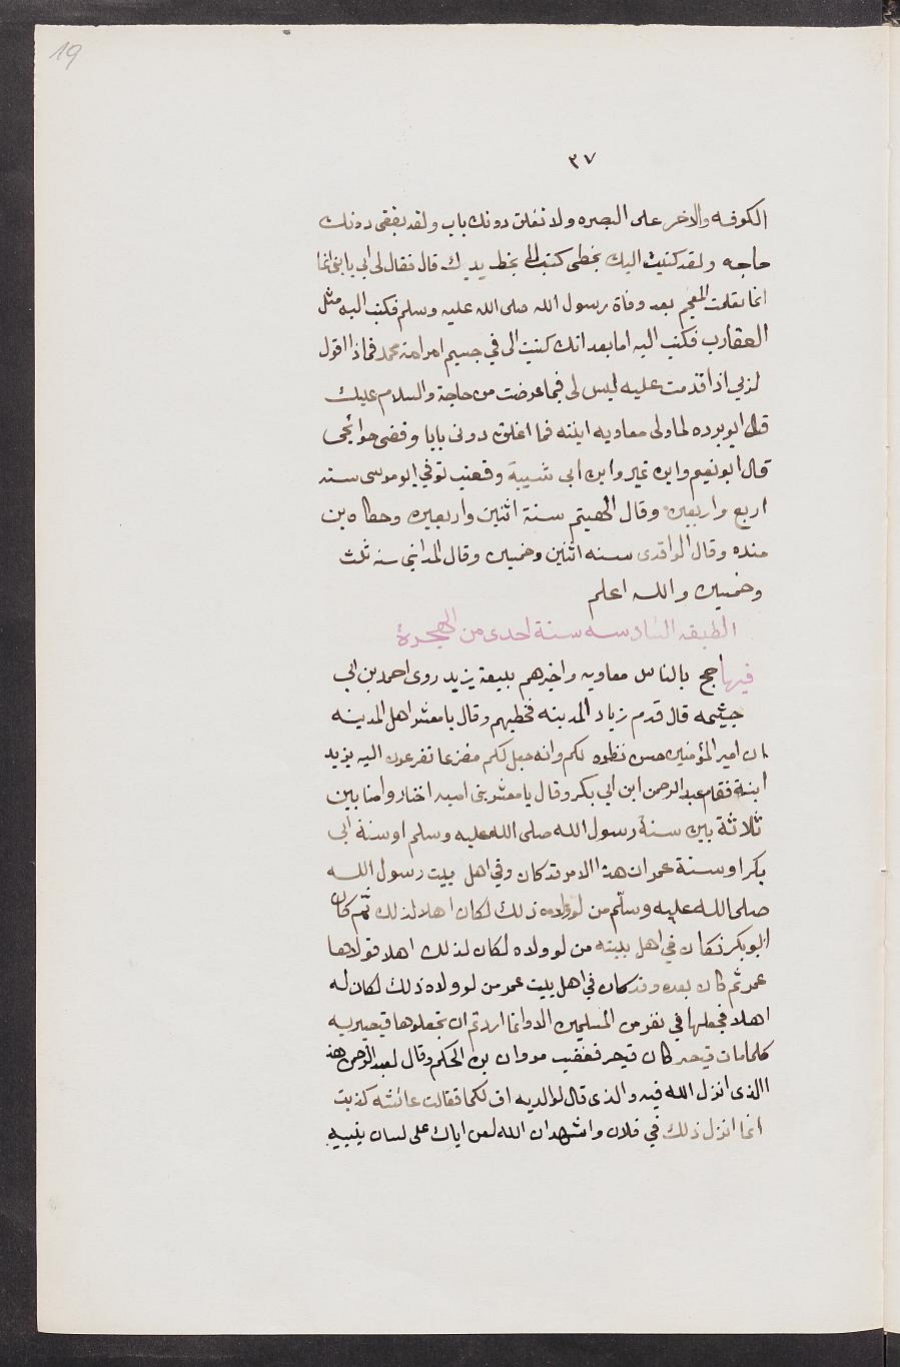 19
٣٧
الكوفه والاخر على البصره ولا تغلق دونك باب ولقد تقضى دونك
حاجه ولقد كتبت اليك بخطى كتب الى بخط يديك قال فقال لى ابى يا بنى انما
انما تعلمت المعجم بعد وفاة رسول الله صلى الله عليه وسلم فكتب اليه مثل
العقارب فكتب اليه اما بعد انك كتبت الى في جسيم امر امة محمد فماذا اقول
لربى اذا قدمت عليه ليس لى فيما عرضت من حاجة والسلام عليك
قال ابو برده لما ولى معاويه اتيته فما اغلق دونى بابا وقضى حوائجى
قال ابو نعيم وابن نمير وابن ابى شيبة وقعنب توفي ابو موسى سنه
اربع واربعين وقال الهيتم سنة اثنين واربعين وحكاه بن
منده وقال الواقدى سنه اثنين وخمسين وقال المداينى سنه ثلث
وخمسين والله اعلم
الطبقه السادسه سنة احدى من الهجرة
فيها حج بالناس معاويه واخبرهم ببيعة يزيد روى احمد بن ابى
خيثمه قال قدم زياد المدينه فخطبهم وقال يا معشر اهل المدينه
ان امير المؤمنين حسن نظره لكم وانه جعل لكم مفزعا تفزعون اليه يزيد
ابنة فقام عبد الرحمن ابن ابى بكر وقال يا معشر بنى اميه اختاروا منا بين
ثلاثة بين سنة رسول الله صلى الله عليه وسلم او سنة ابى
بكر او سنة عمر ان هذا الامر قد كان وفي اهل بيت رسول الله
صلى الله عليه وسلم من لو ولاه ذلك لكان اهلا لذلك ثم كان
ابو بكر فكان في اهل بيته من لو ولاه لكان لذلك اهلا فولاها
عمر ثم كان بعده وقد كان في اهل بيت عمر من لو ولاه ذلك لكان له
اهلا فجعلها في نفر من المسلمين الا وانما اردتم ان تجعلوها قيصريه
كلما مات قيصر كان قيصر فغضب مروان بن الحكم وقال لعبد الرحمن هذا
الذى انزل الله فيه والذى قال لوالديه اف لكما فقالت عائشه كذبت
انما انزل ذلك في فلان واشهد ان الله لعن اباك على لسان نبيه